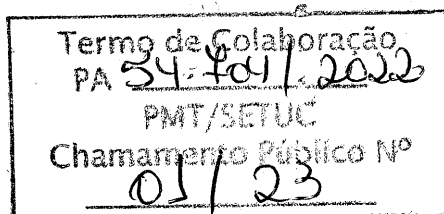 Termo de Colaboração
PA 54.704/.2022
PMT/SETUC
Chamamento Público Nº
01/23